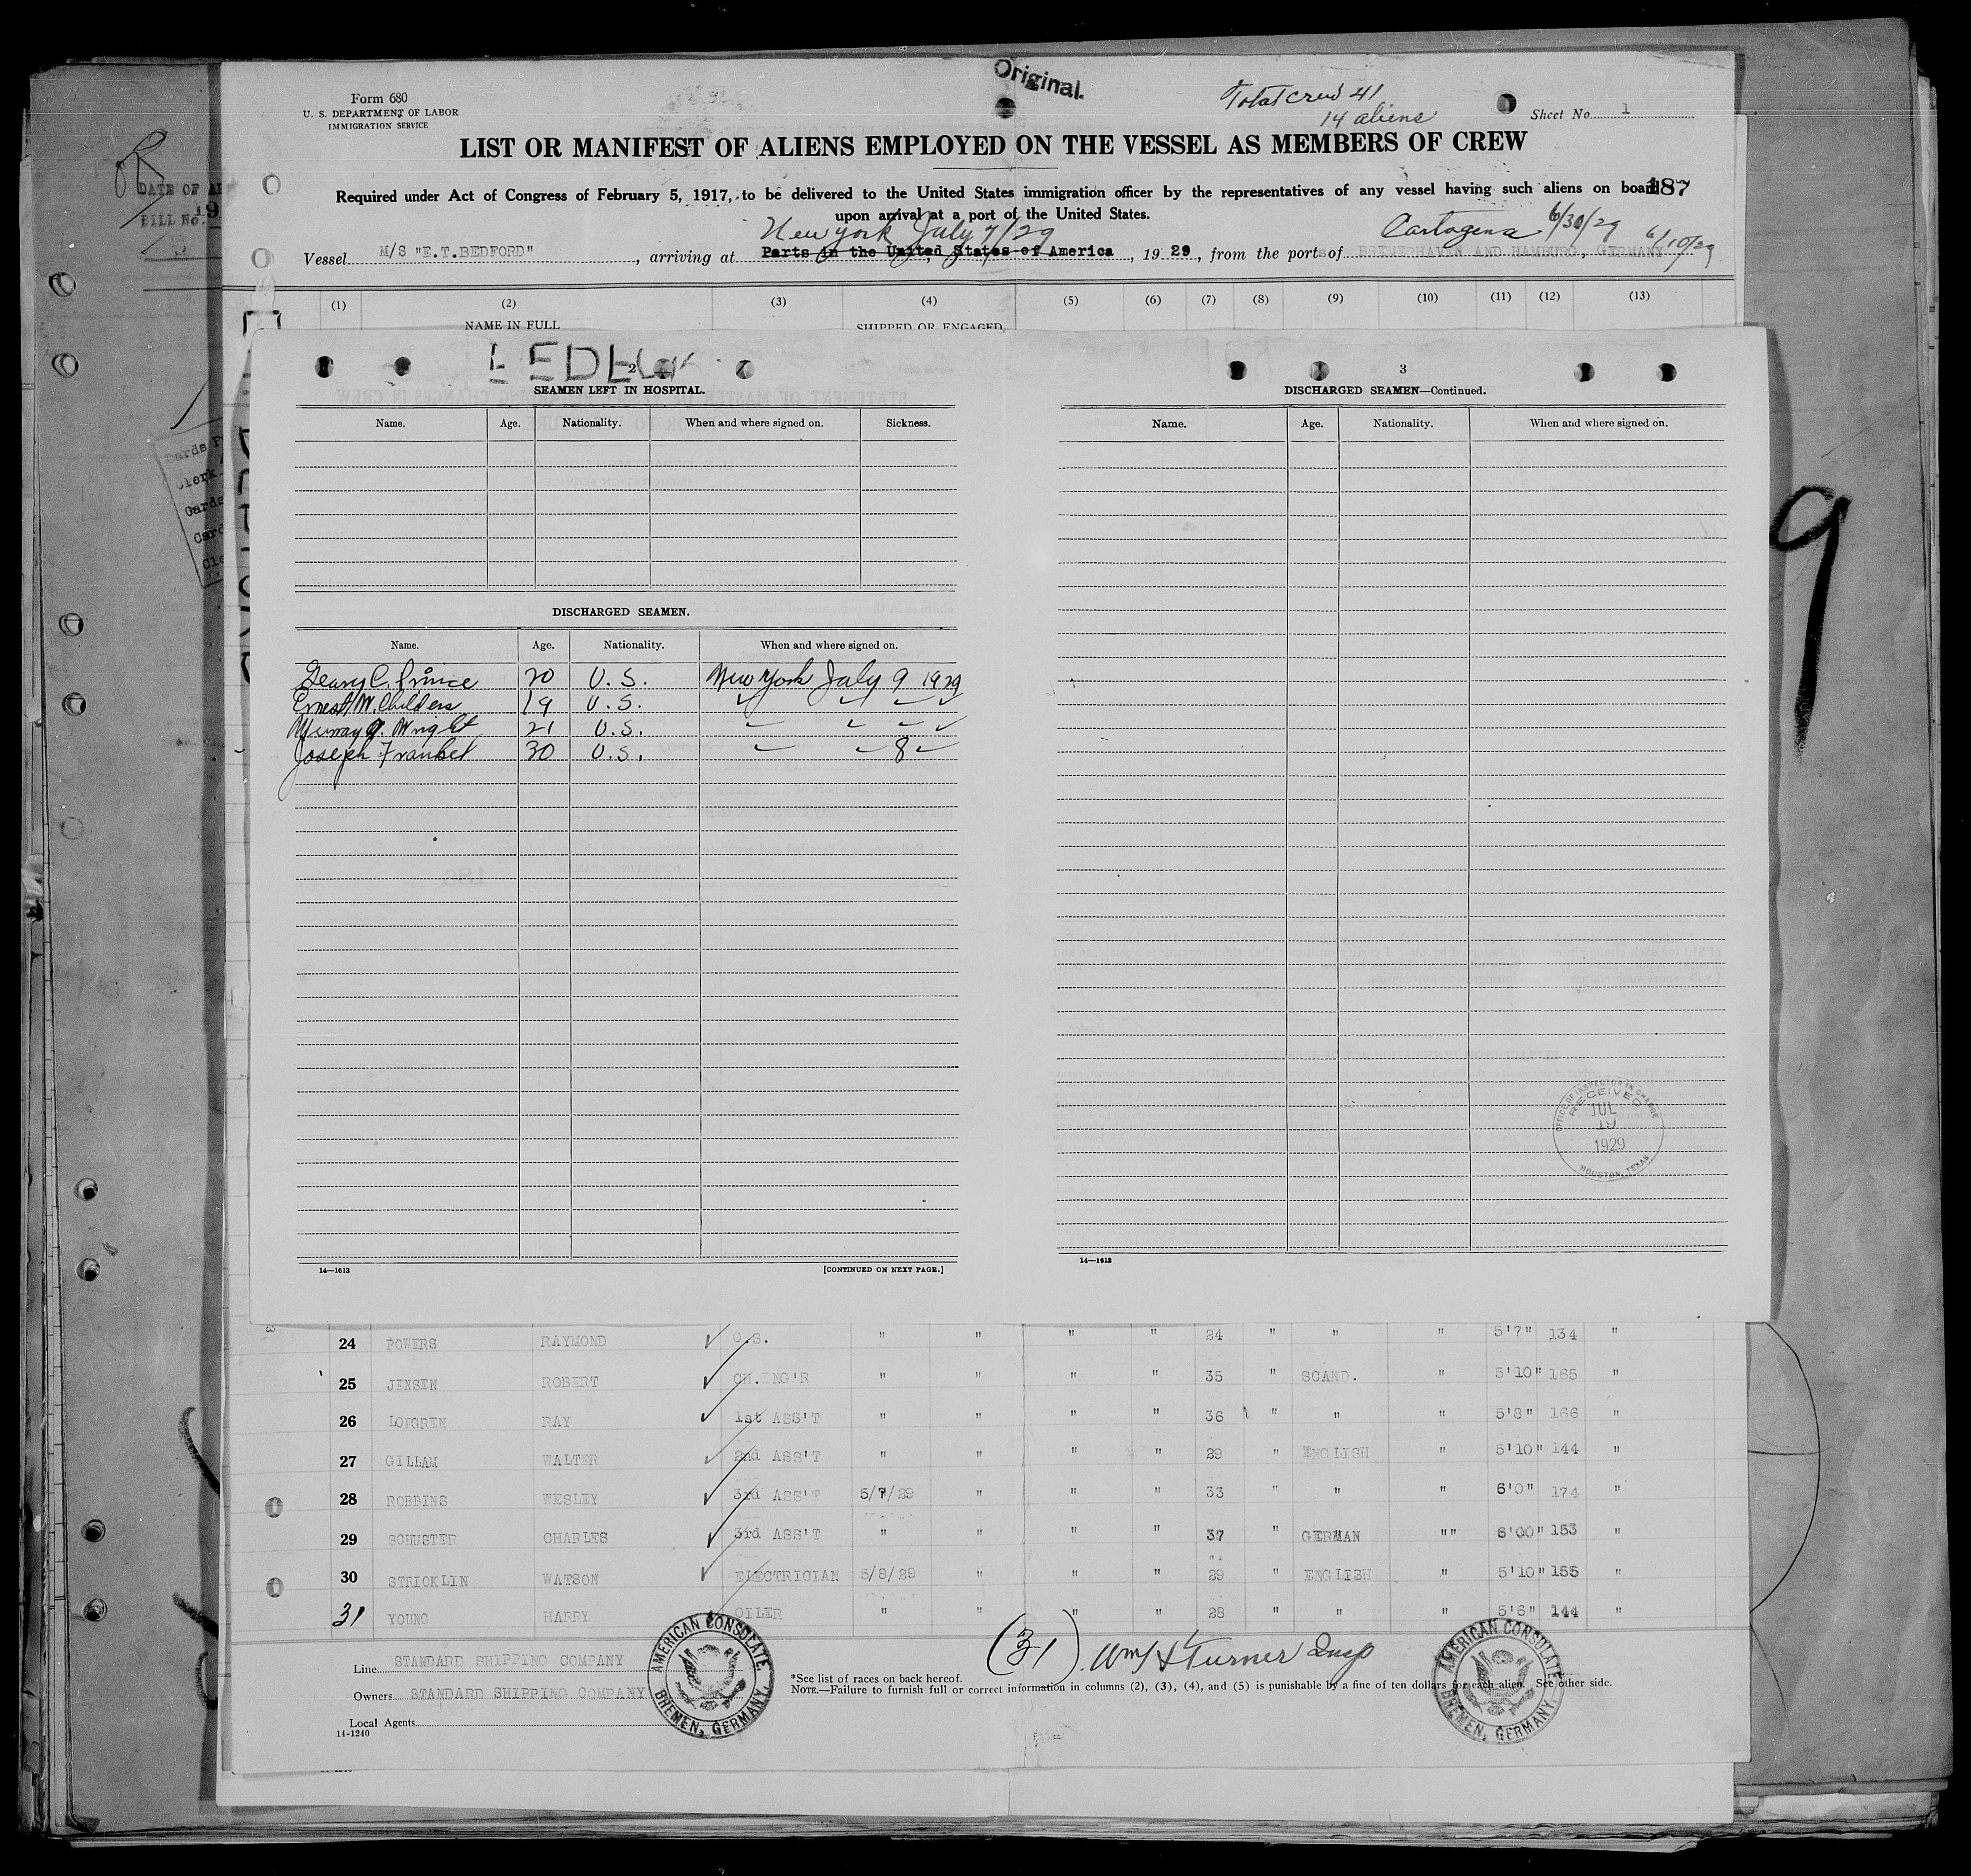 Original
Total crew 41
14 aliens
Form 680
U. S. DEPARTMENT OF LABOR
IMMIGRATION SERVICE
Sheet No. 1
LIST OR MANIFEST OF ALIENS EMPLOYED ON THE VESSEL AS MEMBERS OF CREW
Required under Act of Congress of February 5, 1917, to be delivered to the United States immigration officer by the representatives of any vessel having such aliens on board
187
upon arrival at a port of the United States.
New York July 7/29
Cartagena 6/30/29
6/10/29
Vessel M/S "E.T.BEDFORD", arriving at Ports in the United States of America, 1929, from the ports of BREMERHAVEN AND HAMBURG, GERMANY
(1) (2) (3) (4) (5) (6) (7) (8) (9) (10) (11) (12) (13)
NAME IN FULL SHIPPED OR ENGAGED
DATE OF
BILL No.
Cards
Clerk
Cards
Card
9
2
SEAMEN LEFT IN HOSPITAL.
Name. Age. Nationality. When and where signed on. Sickness.
DISCHARGED SEAMEN.
Name. Age. Nationality. When and where signed on.
C. Prince 20 U.S. New York July 9 1929
Ernest W. Childers 19 U.S. ✓ ✓ ✓ ✓
Wright 21 U.S. ✓ ✓ ✓ ✓
Joseph Frankel 30 U.S. ✓ ✓ 8 ✓
14—1613 [CONTINUED ON NEXT PAGE.]
3
DISCHARGED SEAMEN—Continued.
Name. Age. Nationality. When and where signed on.
OFFICE OF INSPECTOR IN CHARGE
RECEIVED
JUL
19
1929
HOUSTON, TEXAS
14—1613
24 POWERS RAYMOND ✓ O.S. " " " " 24 " " " 5'7" 134 "
25 JENSEN ROBERT ✓ CH.ENG'R " " " " 35 " SCAND. " 5'10" 165 "
26 LOFGREN RAY ✓ 1st ASS'T " " " " 36 " " " 5'8" 166 "
27 GILLAM WALTER ✓ 2nd ASS'T " " " " 29 " ENGLISH " 5'10" 144 "
28 ROBBINS WESLEY ✓ 3rd ASS'T 5/7/29 " " " 33 " " " 6'0" 174 "
29 SCHUSTER CHARLES ✓ 3rd ASS'T " " " " 37 " GERMAN "" 6'00" 153 "
30 STRICKLIN WATSON ✓ ELECTRICIAN 5/8/29 " " " 29 " ENGLISH " 5'10" 155 "
31 YOUNG HARRY OILER " " " " 28 " " " 5'6" 144 "
Line STANDARD SHIPPING COMPANY
Owners STANDARD SHIPPING COMPANY
Local Agents
14-1240
AMERICAN CONSULATE,
BREMEN, GERMANY.
(31) Wm S Turner Insp
*See list of races on back hereof.
NOTE.—Failure to furnish full or correct information in columns (2), (3), (4), and (5) is punishable by a fine of ten dollars for each alien. See other side.
AMERICAN CONSULATE,
BREMEN, GERMANY.